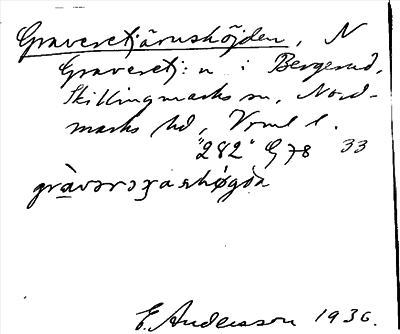 Graveretjärnshöjden, N
Graveretj:n i Bergerud,
Skillingmarks sn, Nord-
marks hd, Vrml l.
"282" G 78 33
E. Andersson 1936.